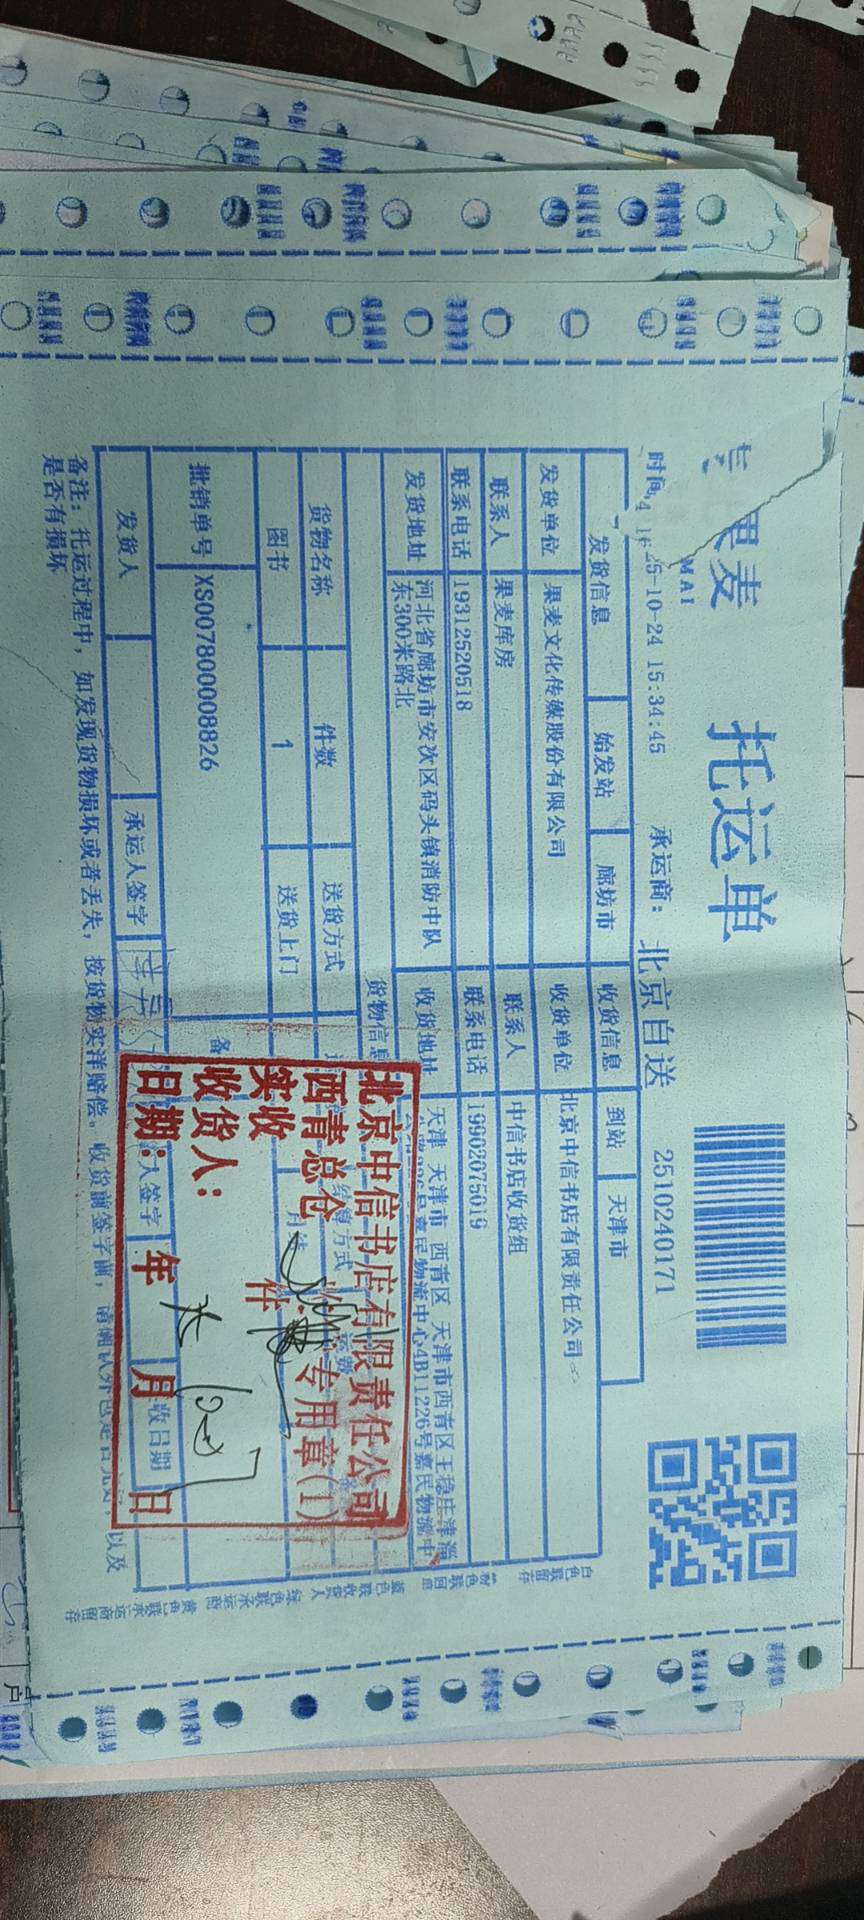 果麦
MAI
托运单
2510240171
时间
25-10-24 15:34:45
承运商: 北京自送
发货信息 始发站 廊坊市 收货信息 到站 天津市
发货单位 果麦文化传媒股份有限公司 收货单位 北京中信书店有限责任公司
联系人 果麦库房 联系人 中信书店收货组
联系电话 19312520518 联系电话 19902075019
发货地址 河北省廊坊市安次区码头镇消防中队东300米路北 收货地址 天津 天津市 西青区 天津市西青区王稳庄津淄
号嘉民物流中心4B11226号嘉民物流中
货物信息
货物名称 件数 送货方式 结算方式 运费
图书 1 送货上门
批销单号 XS007800008826
发货人 承运人签字 人签字 收日期
备注: 托运过程中, 如发现货物损坏或者丢失, 按货物实洋赔偿。收货前签字前, 请确认外包是否完好, 以及
是否有损坏
北京中信书店有限责任公司
西青总仓 收货专用章(1)
实收 件
收货人:
日期: 年 月 日
白色联留存
粉色联回息
蓝色联收货人
绿色联承运商
黄色联承运商留存